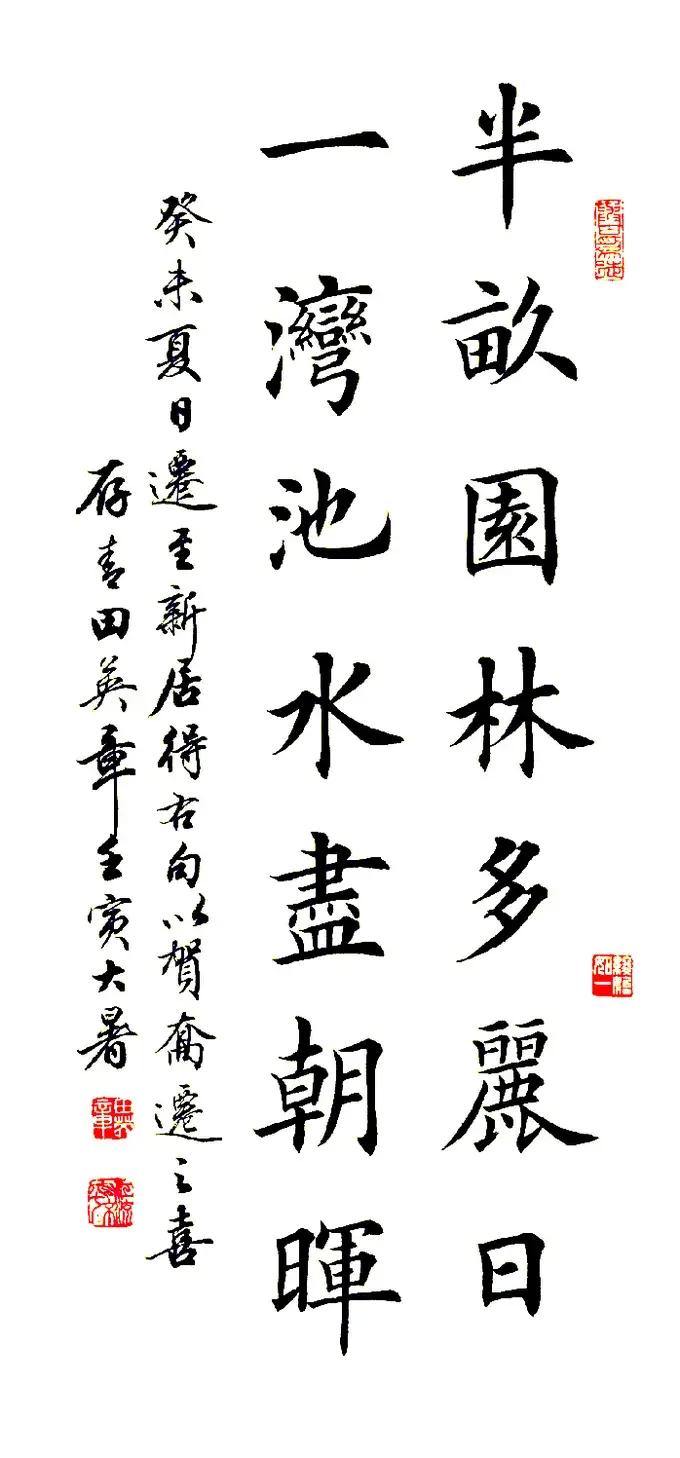 半畝園林多麗日
一灣池水盡朝暉
癸未夏日遷至新居得右句以賀喬遷之喜
存青田英章壬寅大暑
田英章